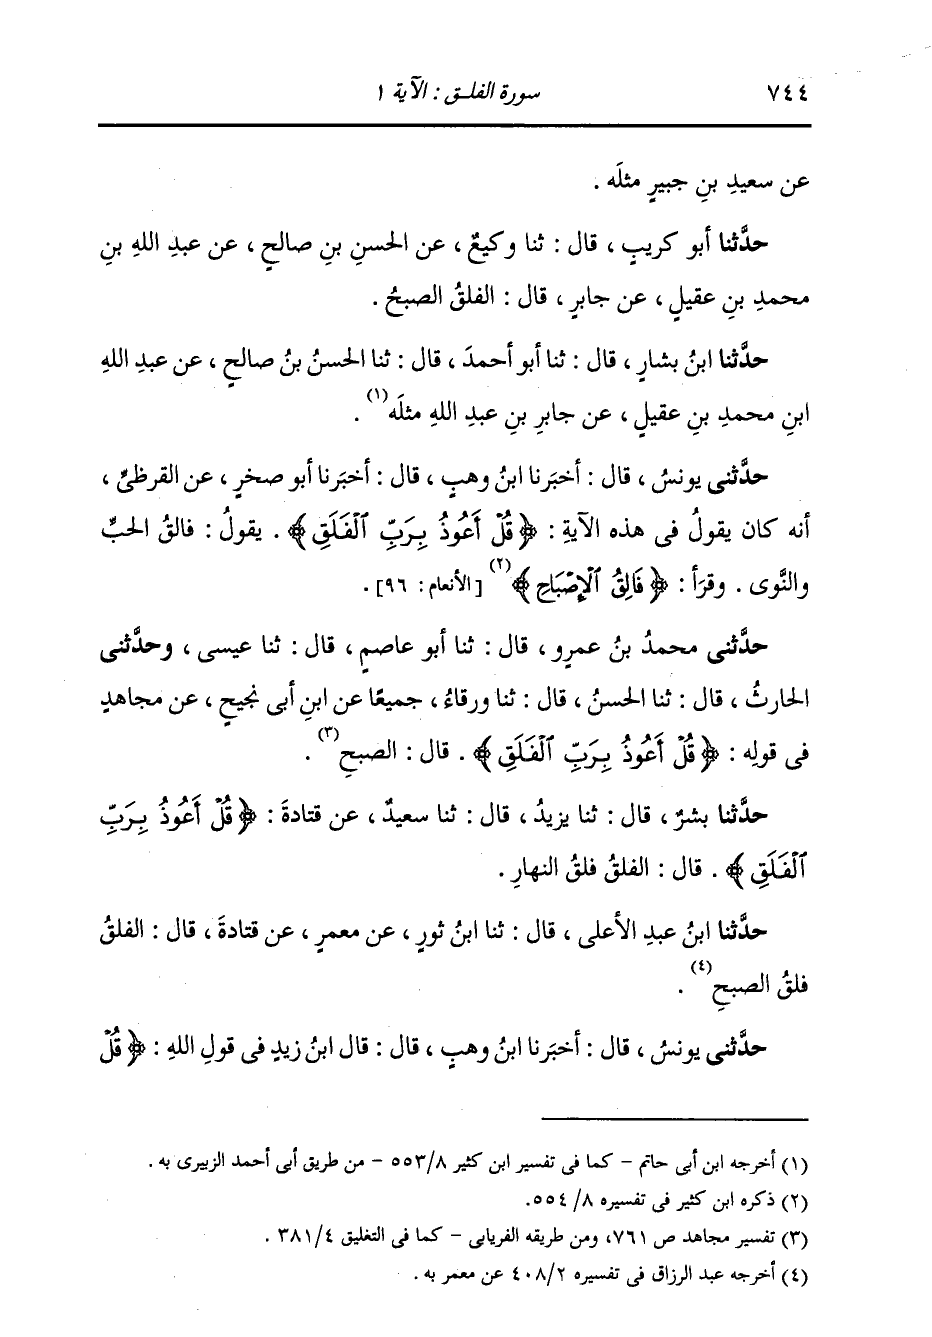 ٧٤٤ سورة الفلق : الآية ١
عن سعيدِ بنِ جبيرٍ مثلَه .
حدَّثنا أبو كريبٍ ، قال : ثنا وكيعٌ ، عن الحسنِ بنِ صالحٍ ، عن عبدِ اللهِ بنِ
محمدِ بنِ عقيلٍ ، عن جابرٍ ، قال : الفلقُ الصبحُ .
حدَّثنا ابنُ بشارٍ ، قال : ثنا أبو أحمدَ ، قال : ثنا الحسنُ بنُ صالحٍ ، عن عبدِ اللهِ
ابنِ محمدِ بنِ عقيلٍ ، عن جابرِ بنِ عبدِ اللهِ مثلَه(١) .
حدَّثنى يونسُ ، قال : أخبَرنا ابنُ وهبٍ ، قال : أخبَرنا أبو صخرٍ ، عن القرظىِّ ،
أنه كان يقولُ فى هذه الآيةِ : ﴿ قُلْ أَعُوذُ بِرَبِّ ٱلْفَلَقِ ﴾ . يقولُ : فالقُ الحبِّ
والنَّوى . وقرَأ : ﴿ فَالِقُ ٱلْإِصْبَاحِ ﴾(٢) [الأنعام: ٩٦] .
حدَّثنى محمدُ بنُ عمرٍو ، قال : ثنا أبو عاصمٍ ، قال : ثنا عيسى ، وحدَّثنى
الحارثُ ، قال : ثنا الحسنُ ، قال : ثنا ورقاءُ ، جميعًا عن ابنِ أبى نجيحٍ ، عن مجاهدٍ
فى قولِه : ﴿ قُلْ أَعُوذُ بِرَبِّ ٱلْفَلَقِ ﴾ . قال : الصبحِ(٣) .
حدَّثنا بشرٌ ، قال : ثنا يزيدُ ، قال : ثنا سعيدٌ ، عن قتادةَ : ﴿ قُلْ أَعُوذُ بِرَبِّ
ٱلْفَلَقِ ﴾ . قال : الفلقُ فلقُ النهارِ .
حدَّثنا ابنُ عبدِ الأعلى ، قال : ثنا ابنُ ثورٍ ، عن معمرٍ ، عن قتادةَ ، قال : الفلقُ
فلقُ الصبحِ(٤) .
حدَّثنى يونسُ ، قال : أخبَرنا ابنُ وهبٍ ، قال : قال ابنُ زيدٍ فى قولِ اللهِ : ﴿ قُلْ
(١) أخرجه ابن أبى حاتم – كما فى تفسير ابن كثير ٨/ ٥٥٣ – من طريق أبى أحمد الزبيرى به .
(٢) ذكره ابن كثير فى تفسيره ٨/ ٥٥٤.
(٣) تفسير مجاهد ص ٧٦١، ومن طريقه الفريابى – كما فى التغليق ٤/ ٣٨١ .
(٤) أخرجه عبد الرزاق فى تفسيره ٢/ ٤٠٨ عن معمر به .